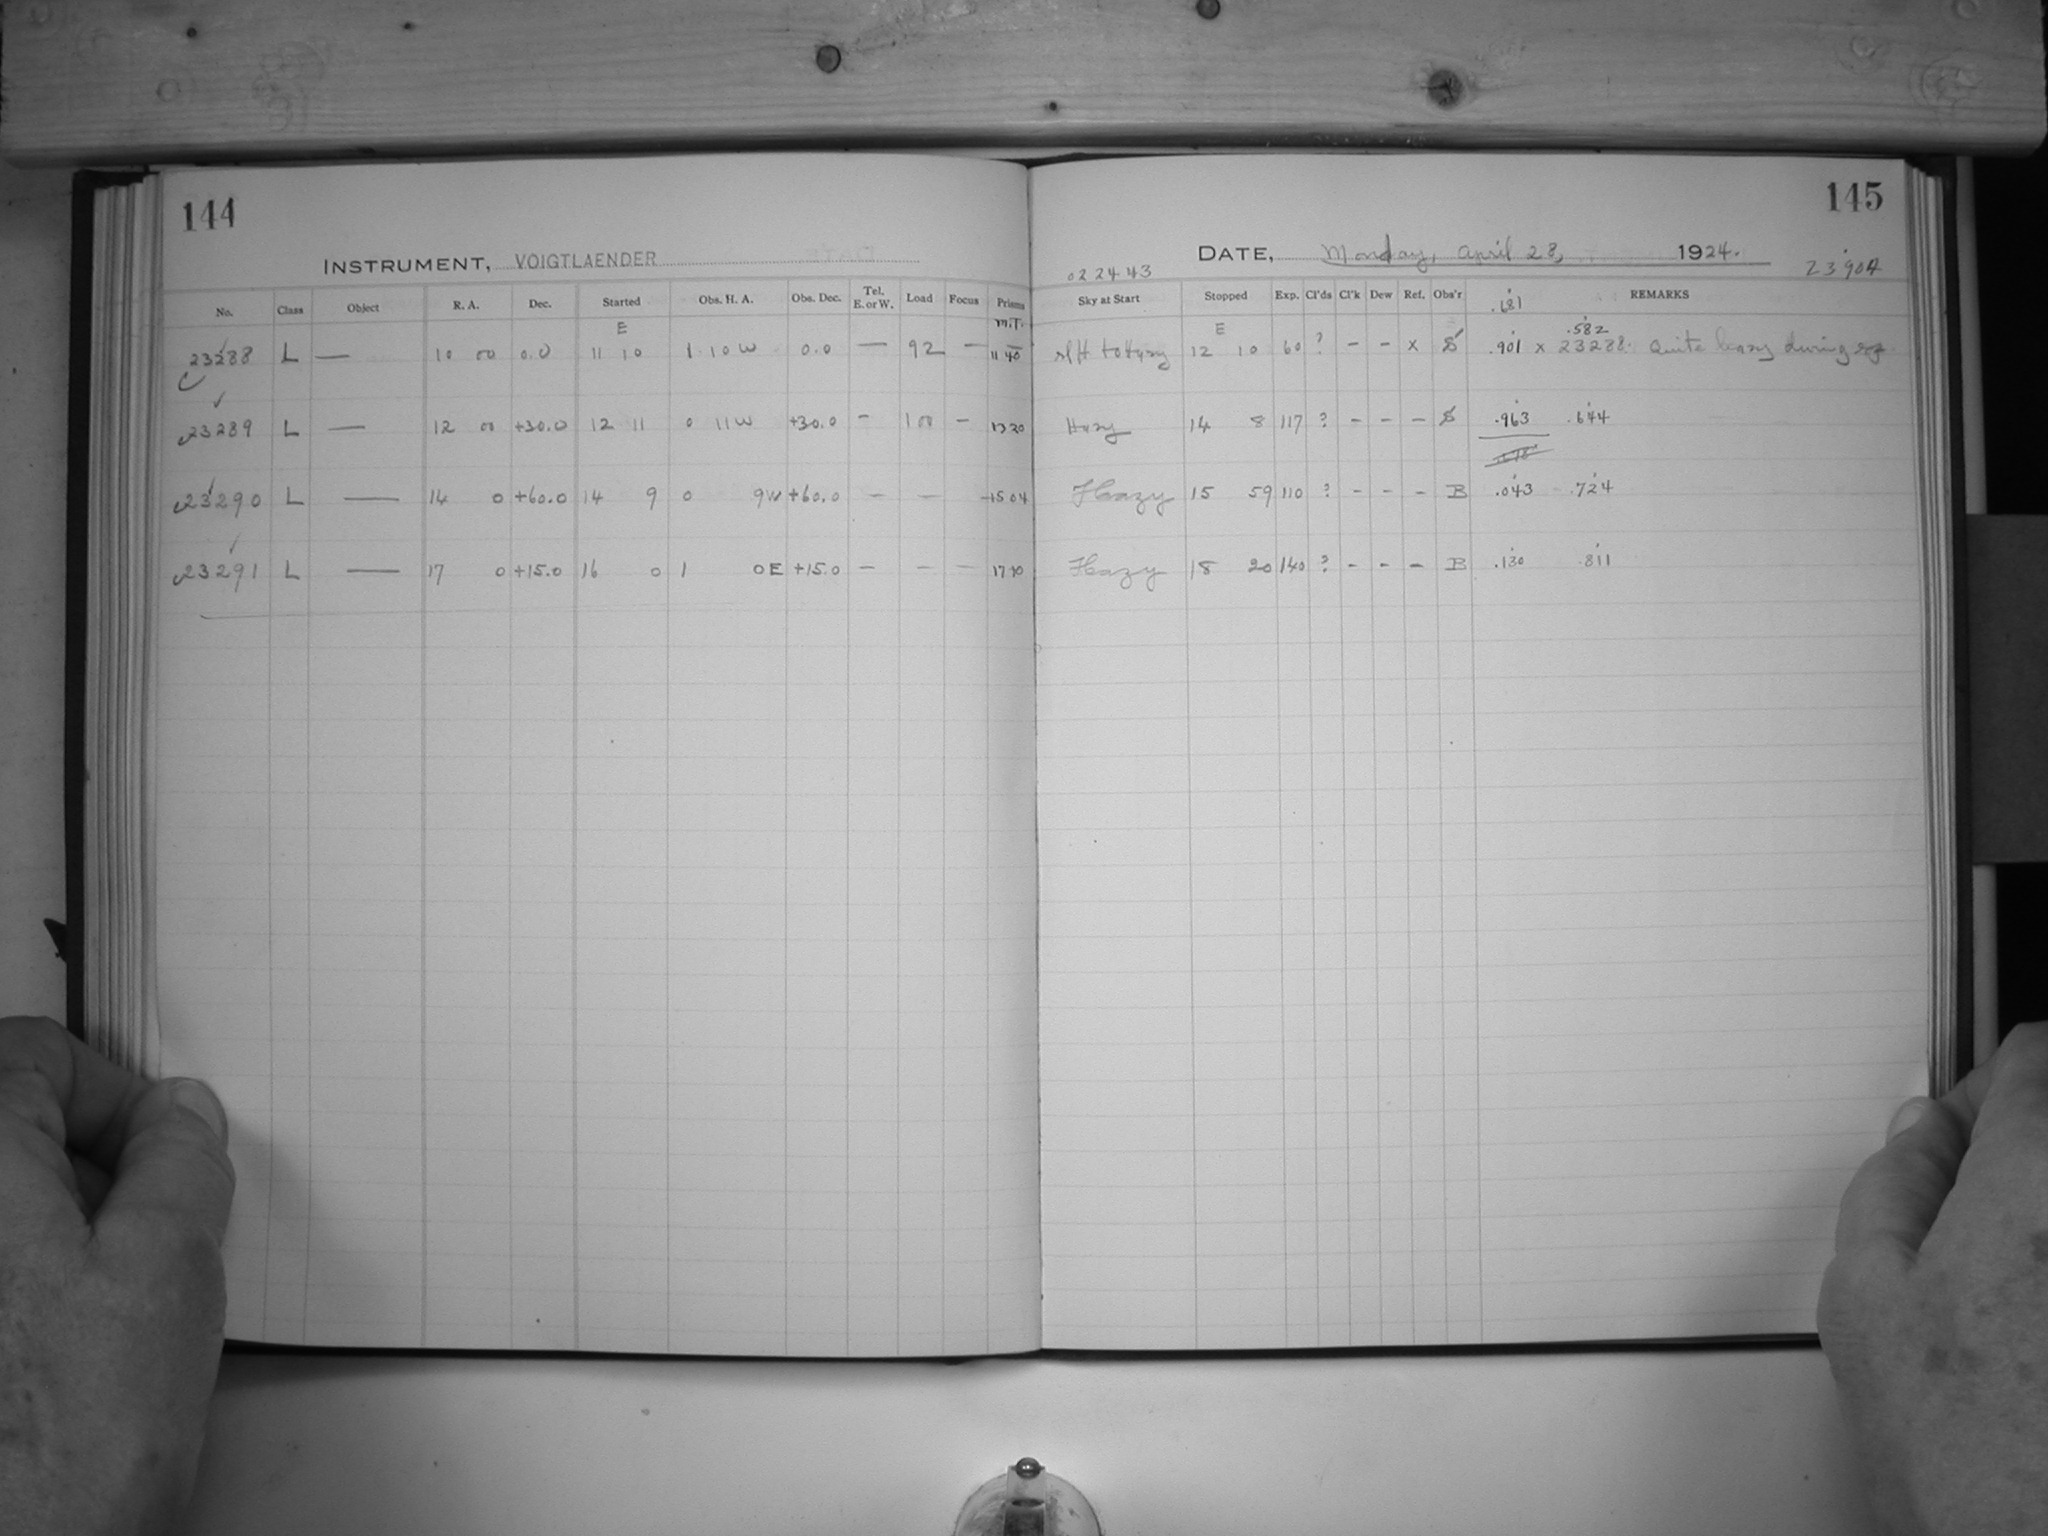 144
INSTRUMENT, VOIGTLAENDER
No. Class Object R. A. Dec. Started Obs. H. A. Obs. Dec. Tel. E. or W. Load Focus Prisms
E M.T.
23288 L — 10 00 0.0 11 10 1 10 W 0.0 — 92 — 11 40
23289 L — 12 00 +30.0 12 11 0 11 W +30.0 — 100 — 13 20
23290 L — 14 0 +60.0 14 9 0 9 W +60.0 — — 15 04
23291 L — 17 0 +15.0 16 0 1 0 E +15.0 — — — 17 10
145
DATE, Monday, April 28, 1924.
022443 23904
Sky at Start Stopped Exp. Cl'ds Cl'k Dew Ref. Obs'r REMARKS
.681
E .582
to Hazy 12 10 60 ? – – x S .901 x 23288. Quite hazy during
Hazy 14 8 117 ? – – – S .963 .644
Hazy 15 59 110 ? – – – B .043 .724
Hazy 18 20 140 ? – – – B .130 .811